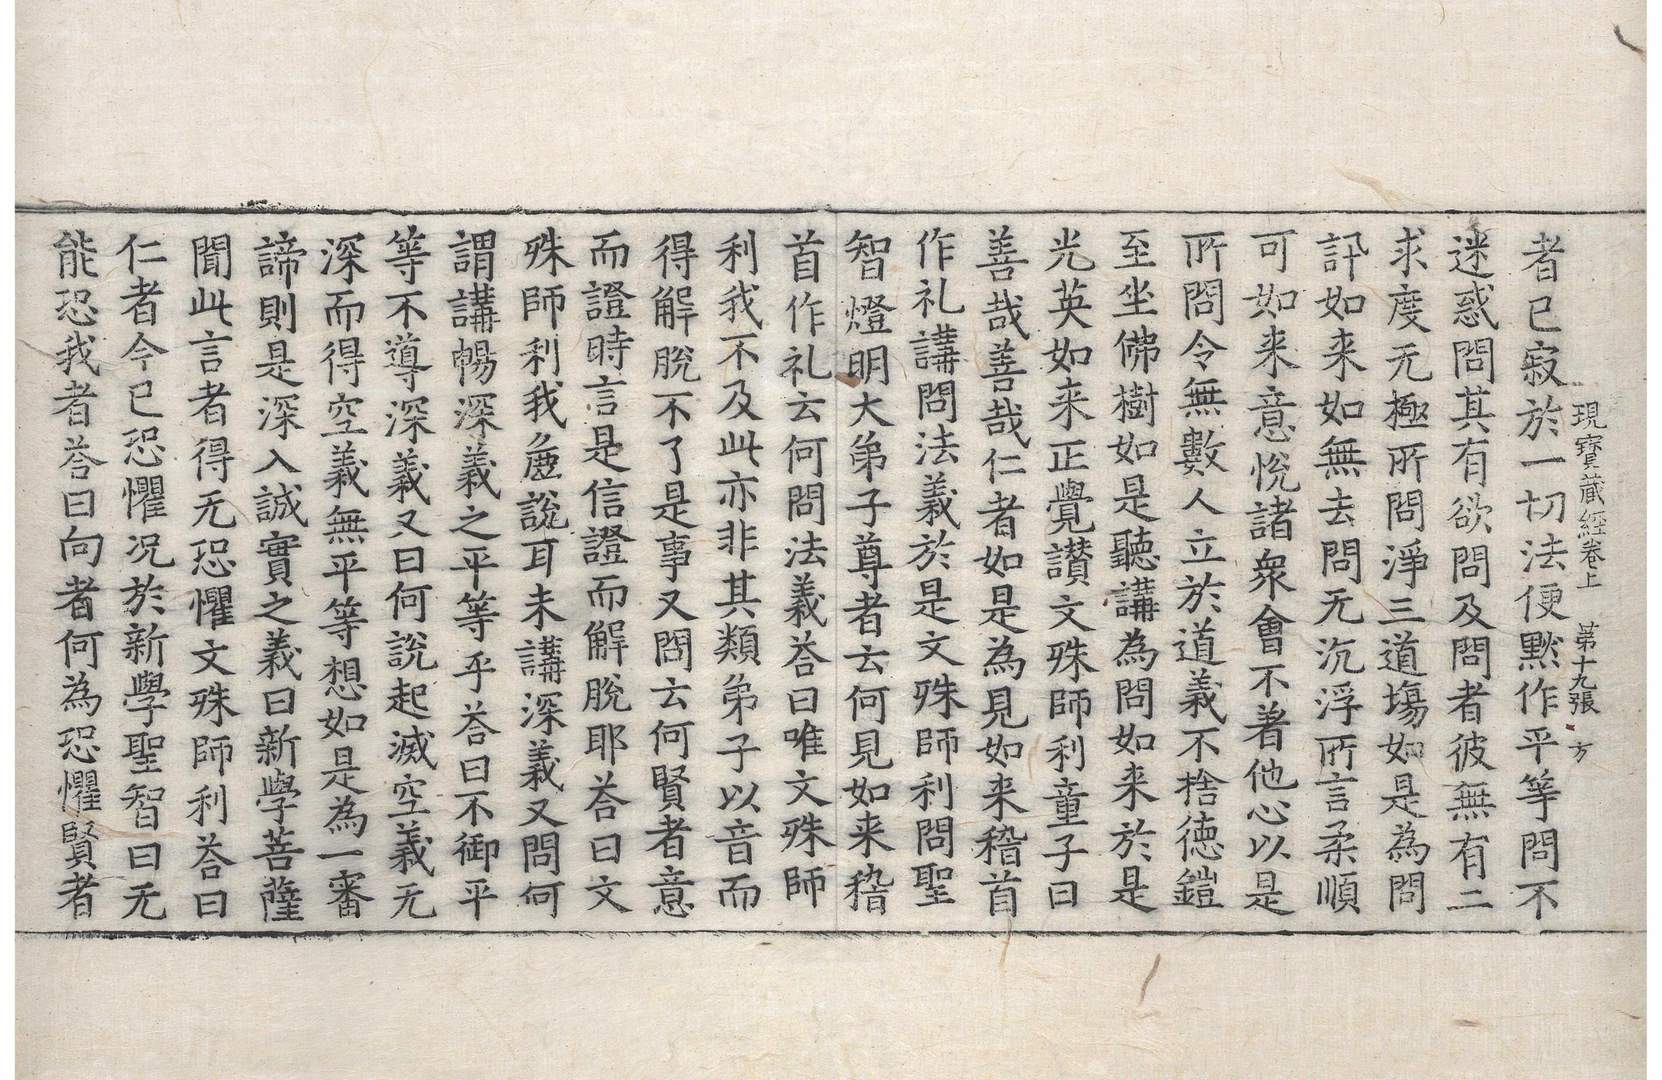 現寶藏經卷上　第十九張　方
者已寂於一切法便默作平等問不
迷惑問其有欲問及問者彼無有二
求度无極所問淨三道場如是為問
訢如来如無去問无沉浮所言柔順
可如来意悅諸衆會不著他心以是
所問令無數人立於道義不捨徳鎧
至坐佛樹如是聽講為問如来於是
光英如来正覺讃文殊師利童子曰
善哉善哉仁者如是為見如来稽首
作礼講問法義於是文殊師利問聖
智燈明大弟子尊者云何見如来稽
首作礼云何問法義荅曰唯文殊師
利我不及此亦非其類弟子以音而
得解脫不了是事又問云何賢者意
而證時言是信證而解脫耶荅曰文
殊師利我麁說耳未講深義又問何
謂講暢深義之平等乎荅曰不御平
等不導深義又曰何說起滅空義无
深而得空義無平等想如是為一審
諦則是深入誠實之義曰新學菩薩
聞此言者得无恐懼文殊師利荅曰
仁者今已恐懼况於新學聖智曰无
能恐我者荅曰向者何為恐懼賢者